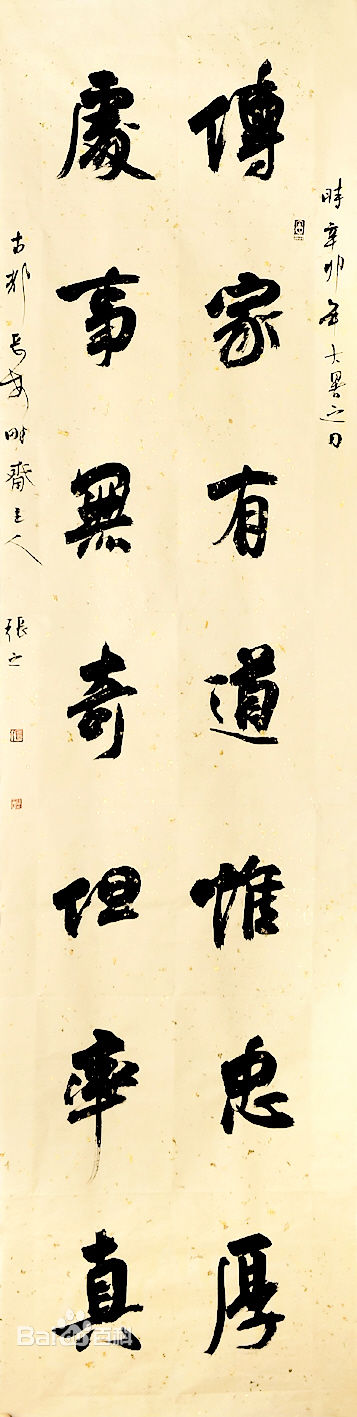 時辛卯年大暑之日
傳家有道惟忠厚
處事無奇但率真
古都長安齋主人 張之
Baidu百科